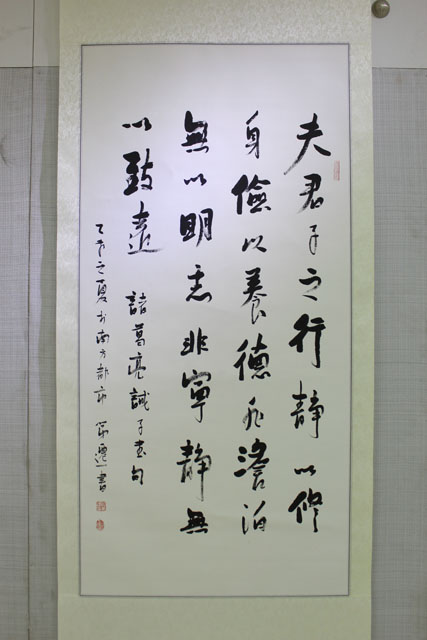 夫君子之行靜以修
身儉以養德非澹泊
無以明志非寧靜無
以致遠
諸葛亮誡子書句
之夏於南方都市 書